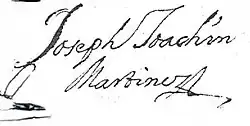 Joseph Joachin
Martinez